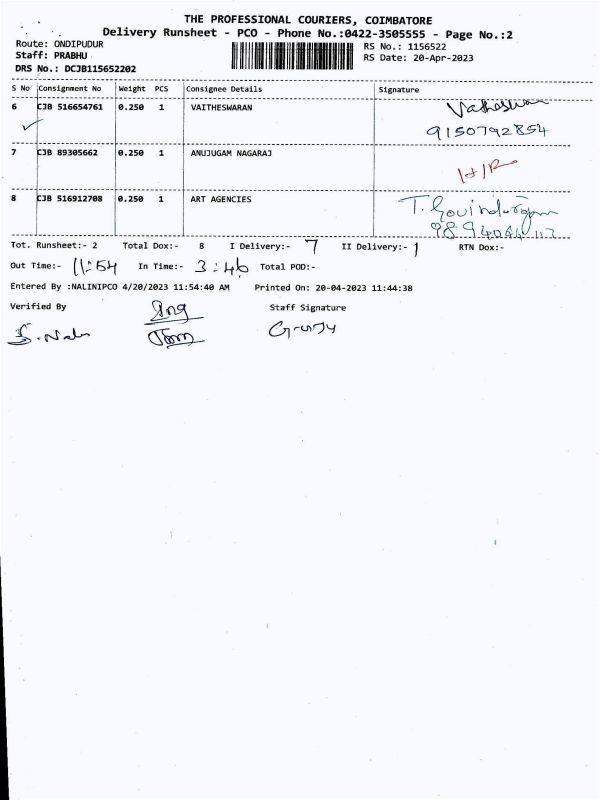 THE PROFESSIONAL COURIERS, COIMBATORE
Delivery Runsheet - PCO - Phone No.:0422-3505555 - Page No.:2
Route: ONDIPUDUR RS No.: 1156522
Staff: PRABHU RS Date: 20-Apr-2023
DRS No.: DCJB115652202
S No Consignment No Weight PCS Consignee Details Signature
6 CJB 516654761 0.250 1 VAITHESWARAN
9150792854
7 CJB 89305662 0.250 1 ANUJUGAM NAGARAJ
8 CJB 516912708 0.250 1 ART AGENCIES T. Govindarajan
Tot. Runsheet:- 2 Total Dox:- 8 I Delivery:- 7 II Delivery:- 1 RTN Dox:-
Out Time:- 11:54 In Time:- 3:46 Total POD:-
Entered By :NALINIPCO 4/20/2023 11:54:40 AM Printed On: 20-04-2023 11:44:38
Verified By Staff Signature